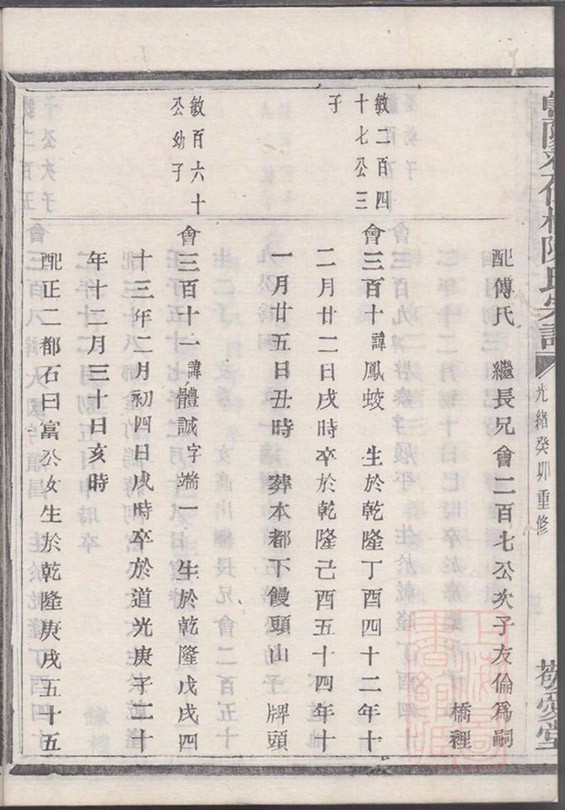 陳氏宗譜
光緒癸卯重修
敬愛堂
配傅氏 繼長兄會二百七公次子友倫爲嗣
橋裡
敏二百四
十七公三
子
會三百十諱鳳蛟 生於乾隆丁酉四十二年十
二月廿二日戌時卒於乾隆己酉五十四年十
一月廿五日丑時 葬本都下饅頭山 牌頭
敏百六十
公幼子
會三百十一諱體誠字端一 生於乾隆戊戌四
十三年二月初四日戌時卒於道光庚子二十
年十二月三十日亥時
配正二都石曰富公女生於乾隆庚戌五十五